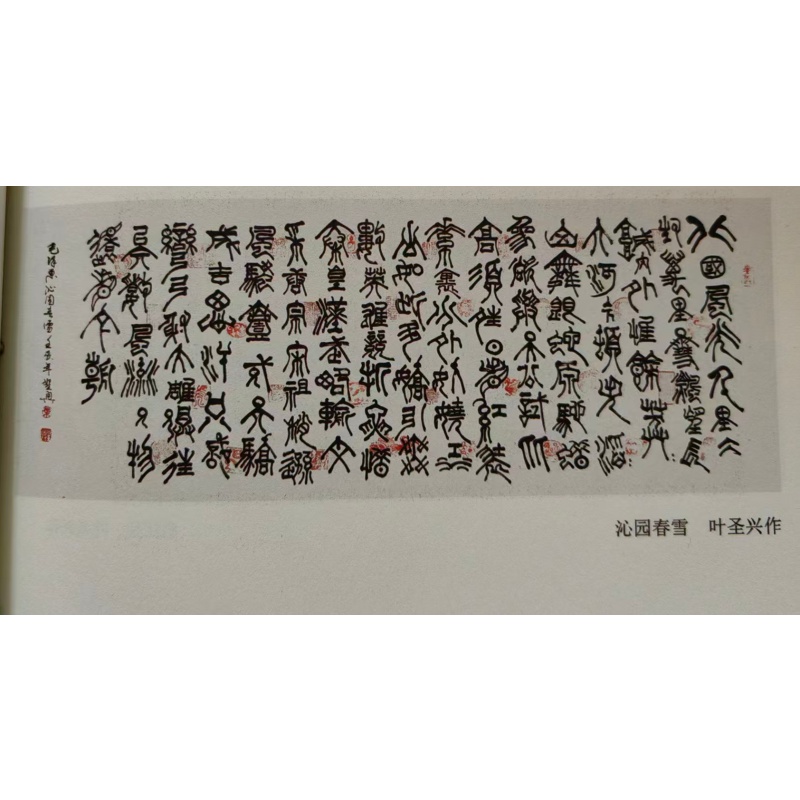 北國風光千里冰
封萬里雪飄望長
城內外惟餘莽莽
大河上下頓失滔滔
山舞銀蛇原馳蠟
象欲與天公試比
高須晴日看紅裝
素裹分外妖嬈江
山如此多嬌引無
數英雄競折腰惜
秦皇漢武略輸文
采唐宗宋祖稍遜
風騷壹代天驕
成吉思汗只識
彎弓射大雕俱往
矣數風流人物
還看今朝
毛澤東沁園春雪壬辰年聖興
沁园春雪 叶圣兴作